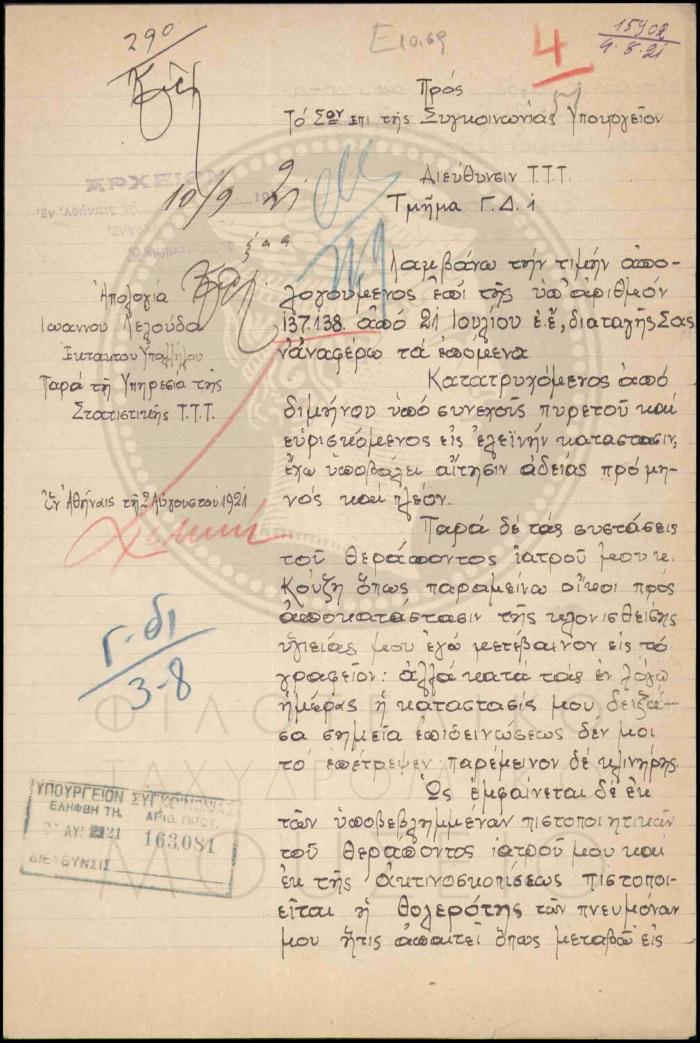 290
Ε10.69
4
15902
9.8.21
Πρός
Τό Σον επι της Συγκοινωνίας Υπουργείον
Διεύθυνσιν Τ.Τ.Τ.
Τμήμα Γ.Δ. 1
ΑΡΧΕΙΟΝ
10/9 1921
Απολογία
Ιωαννου Λελούδα
Εκτακτου Υπαλλήλου
Παρά τη Υπηρεσία της
Στατιστικής Τ.Τ.Τ.
Εν Αθήναις τη 2 Αυγουστου 1921
Λαμβάνω την τιμήν απο-
λογούμενος επί της υπ' αριθμόν
137.138. από 21 Ιουλίου ε.ἔ, διαταγής Σας
ν' αναφέρω τά επόμενα
Κατατρυχόμενος από
διμήνου υπό συνεχούς πυρετού και
ευρισκόμενος εις ελεϊνήν καταστασιν,
έχω υποβάλει αίτησιν αδείας πρό μη-
νός και πλέον.
Παρά δέ τάς συστάσεις
τού θεράποντος ιατρού μου κ.
Κούζη όπως παραμείνω οίκοι προς
αποκατάστασιν της κλονισθείσης
υγιείας μου εγώ μετέβαινον εις το
γραφείον: αλλά κατα τάς εν λόγω
ημέρας ή καταστασίς μου δείξα-
σα σημεία επιδεινώσεως δέν μοι
το επέτρεψεν παρέμεινον δέ κλινήρης.
Ως εμφαίνεται δέ εκ
τών υποβεβλημμέναν πιστοποιητικών
του θεράποντος ιατρού μου και
εκ της ακτινοσκοπίσεως πιστοποι-
είται ή θολερότης τών πνευμόναν
μου ήτις απαιτεί όπως μεταβώ εις
Γ.Δ1
3-8
ΥΠΟΥΡΓΕΙΟΝ ΣΥΓΚΟΙΝΩΝΙΑΣ
ΕΛΗΦΘΗ ΤΗ ΑΡΙΘ. ΠΡΩΤ.
ΑΥΓ 21 163,081
ΔΙΕΥΘΥΝΣΙΣ
ΦΙΛΟΤΕΛΙΚΟ
ΤΑΧΥΔΡΟΜΙΚΟ
ΜΟΥΣΕΙΟ